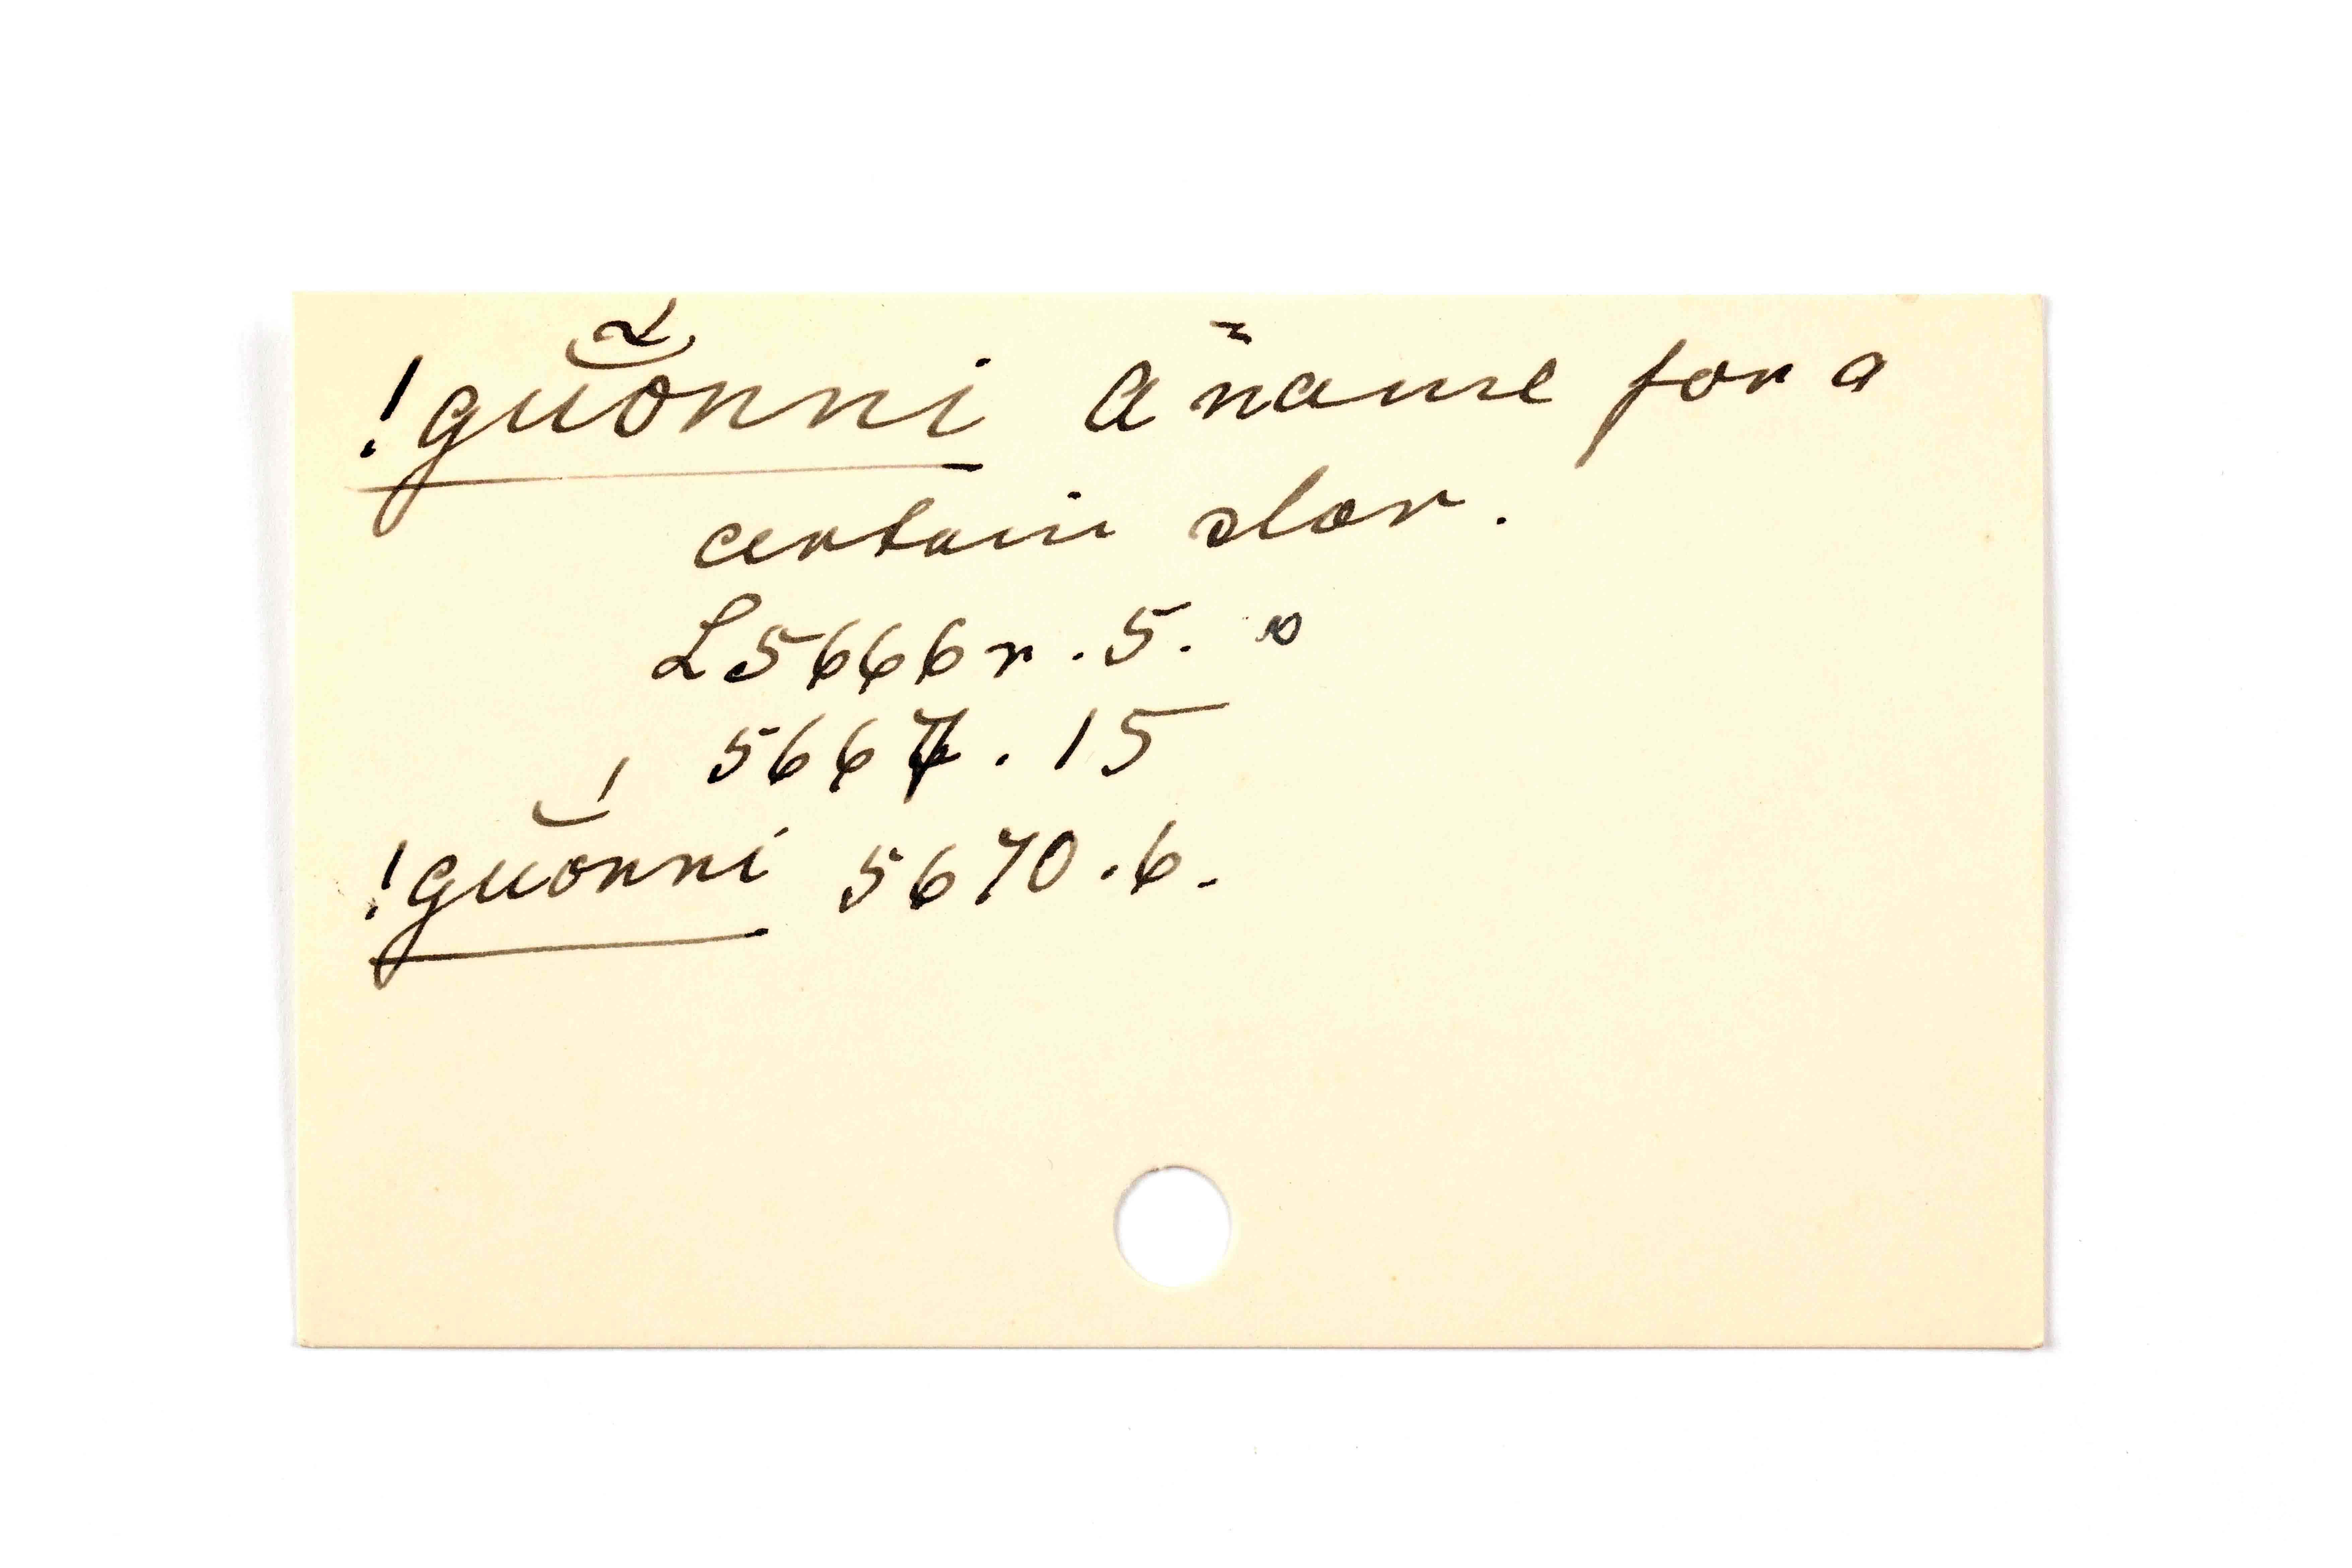 !guŏnni A name for a
certain star.
L5666r.5.
5667.15
!guŏnni 5670.6.